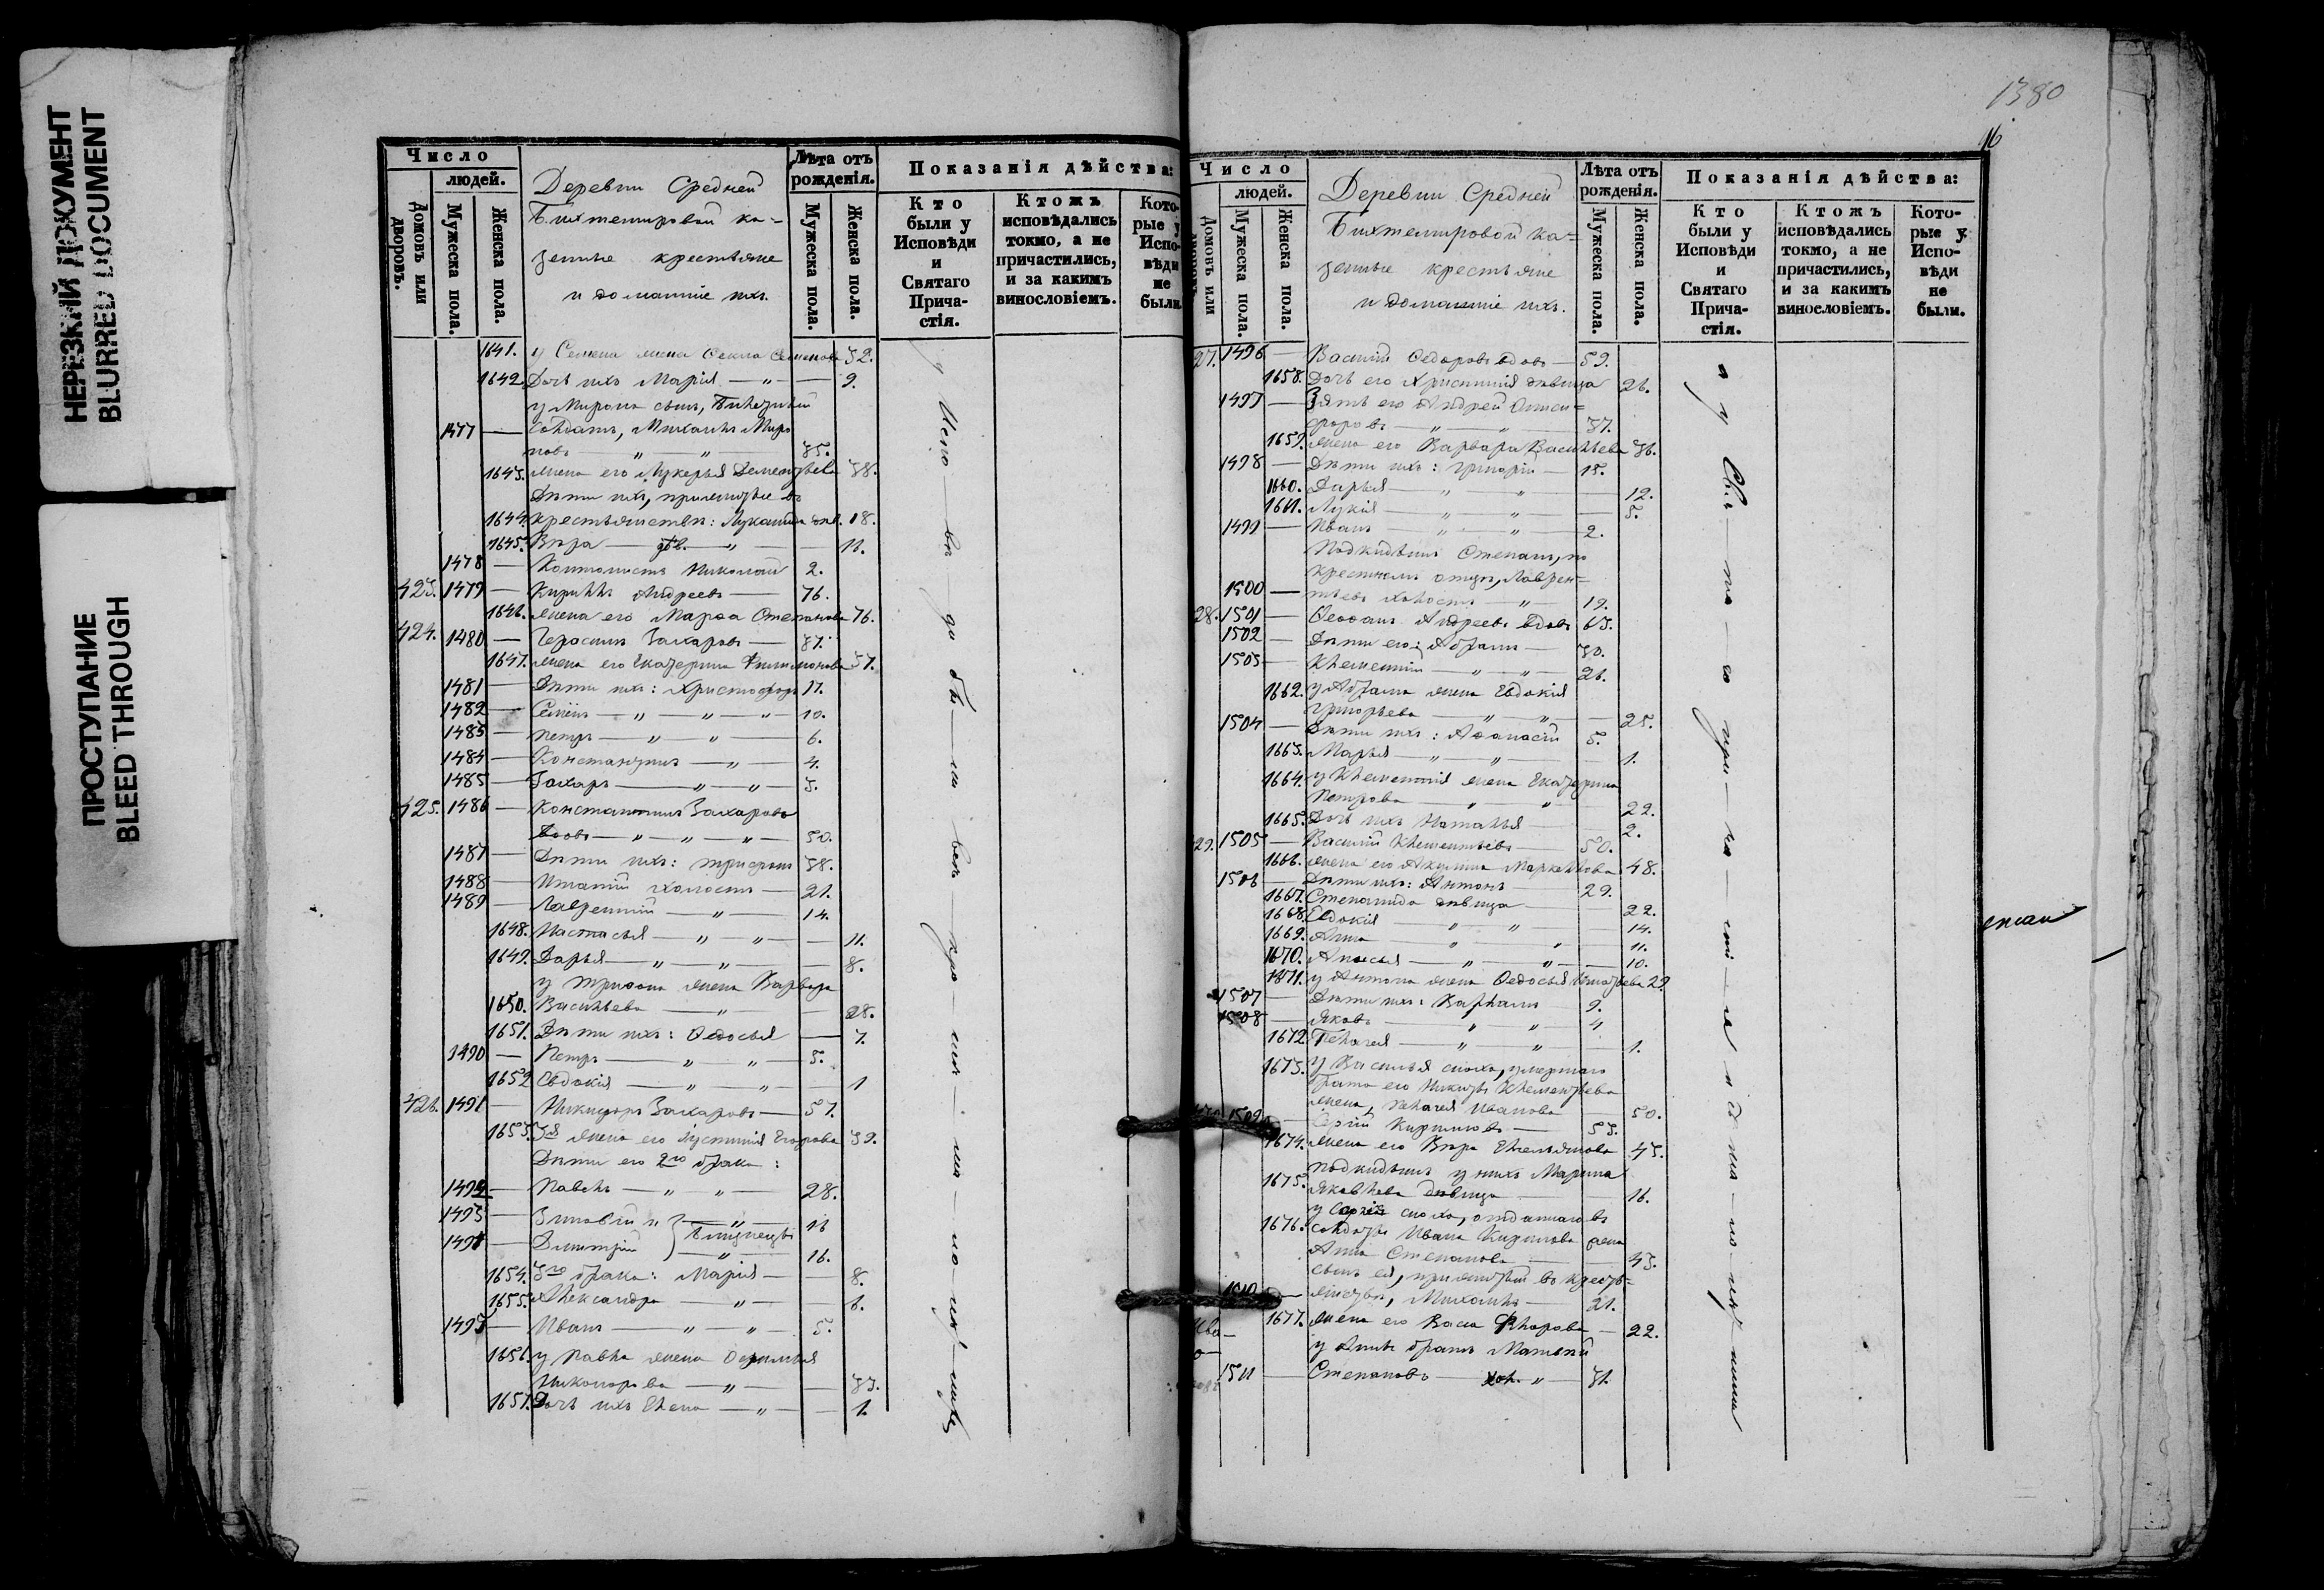 НЕРЕЗКИЙ ДОКУМЕНТ
BLURRED DOCUMENT
ПРОСТУПАНИЕ
BLEED THROUGH
Число
людей.
Домовъ или дворовъ.
Мужеска пола.
Женска пола.
Деревни Средней
Бихтемировой ка-
зенные крестьяне
и домашніе ихъ.
Лѣта отъ рожденія.
Мужеска пола.
Женска пола.
Показанія дѣйства:
Кто были у Исповѣди и Святаго Прича-стія.
Ктожъ исповѣдались токмо, а не причастились, и за какимъ винословіемъ.
Кото-рые у Испо-вѣди не были.
1641. у Семена жена Секла Семенова 32.
1642. Дочь ихъ Марія — " — 9.
у Мирона сынъ,
1477 — солдатъ, Михаилъ Миро
новъ — " — " — 35.
1643. жена его Лукерья Дементьева 38.
Дѣти ихъ, прижитые въ
1644. крестьянствѣ: 18.
1645. Вѣра — дѣв. — " — 11.
1478 — Николай 2.
423. 1479 — Кириллъ Андреевъ — 76.
1646. жена его Марѳа Степанова 76.
424. 1480 — Герасимъ Захаровъ — 37.
1647. жена его Екатерина Филимонова 37.
1481 — Дѣти ихъ: Христофоръ 17.
1482 — Семёнъ — " — " — " — 10.
1483 — Петръ — " — " — 6.
1484 — Константинъ — " — 4.
1485 — Захаръ — " — " — 3.
425. 1486 — Константинъ Захаровъ
вдовъ — " — " — " — 50.
1487 — Дѣти ихъ: Трифонъ 38.
1488 — Игнатій холостъ — 21.
1489 — Лаврентій — " — 14.
1648. Настасья — " — " — 11.
1649. Дарья — " — " — 8.
у Трифона жена Варвара
1650. Васильева — " — 28.
1651. Дѣти ихъ: Ѳедосья — 7.
1490 — Петръ — " — " — 3.
1652 Евдокія — " — " — 1
426. 1491 — Никифоръ Захаровъ — 57.
1653. 3я жена его Іустинія Егорова 39.
Дѣти его 2го брака:
1492 — Павелъ — " — " — 28.
1493 — Зиновій и — " — 16
1494 — Димитрій } Близнецы — " — 16.
1654. 3го брака: Марія — 8.
1655. Александра — " — 6.
1495 — Иванъ — " — " — 3.
1656. у Павла жена
Никонорова — " — 33.
1657. Дочь ихъ Елена — " — 1.
у Испо - вѣ - ди бы - ли
1380
16
Число
людей.
Домовъ или дворовъ.
Мужеска пола.
Женска пола.
Деревни Средней
Бихтемировой ка-
зенные крестьяне
и домашніе ихъ.
Лѣта отъ рожденія.
Мужеска пола.
Женска пола.
Показанія дѣйства:
Кто были у Исповѣди и Святаго Прича-стія.
Ктожъ исповѣдались токмо, а не причастились, и за какимъ винословіемъ.
Кото-рые у Испо-вѣди не были.
27. 1496 — Василій Ѳедоровъ вдовъ — 59.
1658. Дочь его Христинія дѣвица 26.
1497 — Зять его Андрей
37.
1659. жена его Варвара Васильева 36.
1498 — Дѣти ихъ: Григорій — 15.
1660. Дарья — " — " — 12.
1661. Лукія — " — " — 5.
1499 — Иванъ — " — " — 2.
Подкидышъ Степанъ, по
крестномъ отцѣ, Лаврен=
1500 — тьевъ холостъ — " — 19.
28. 1501 — Ѳеофанъ Андреевъ вдовъ 63.
1502 — Дѣти его: Абрамъ — 30.
1503 — Клементій — " — " — 26.
1662. у Абрама жена Евдокія
Григорьева — " — " — 25.
1504 — Дѣти ихъ: Аѳанасій 5.
1663. Марья — " — " — 1.
1664. у Клементія жена Екатерина
Петрова — " — " — 22.
1665. Дочь ихъ Наталья — 2.
29. 1505 — Василій Клементьевъ — 50.
1666. жена его Акулина Маркелова 48.
1506 — Дѣти ихъ: Антонъ — 29.
1667. Степанида дѣвица — 22.
1668. Евдокія — " — " — 14.
1669. Анна — " — " — 11.
1670. Апросья — " — " — 10.
1671. у Антона жена Ѳедосья Игнатьева 29
1507 — Дѣти ихъ: Варламъ 9.
1508 — Яковъ — " — " — 4
1672. Пелагея — " — " — 1.
1673. у Василья сноха, умершаго
брата его Никиты Клементьева
жена, Пелагея Иванова — 50.
1509 — Сергій Кириловъ — 53.
1674. жена его Вѣра Емельянова 43.
подкидышъ у нихъ Марина
1675. Яковлева дѣвица — 16.
у Сергія сноха, отданнаго въ
1676. солдаты Ивана Кирилова жена
Анна Степанова — 43.
сынъ ея, прижитый въ кресть=
1510 — янствѣ, Михаилъ — 21.
1677. жена его Васса Фларова — 22.
у Анны братъ Матвѣй
1511 — Степановъ — хол. " — 31.